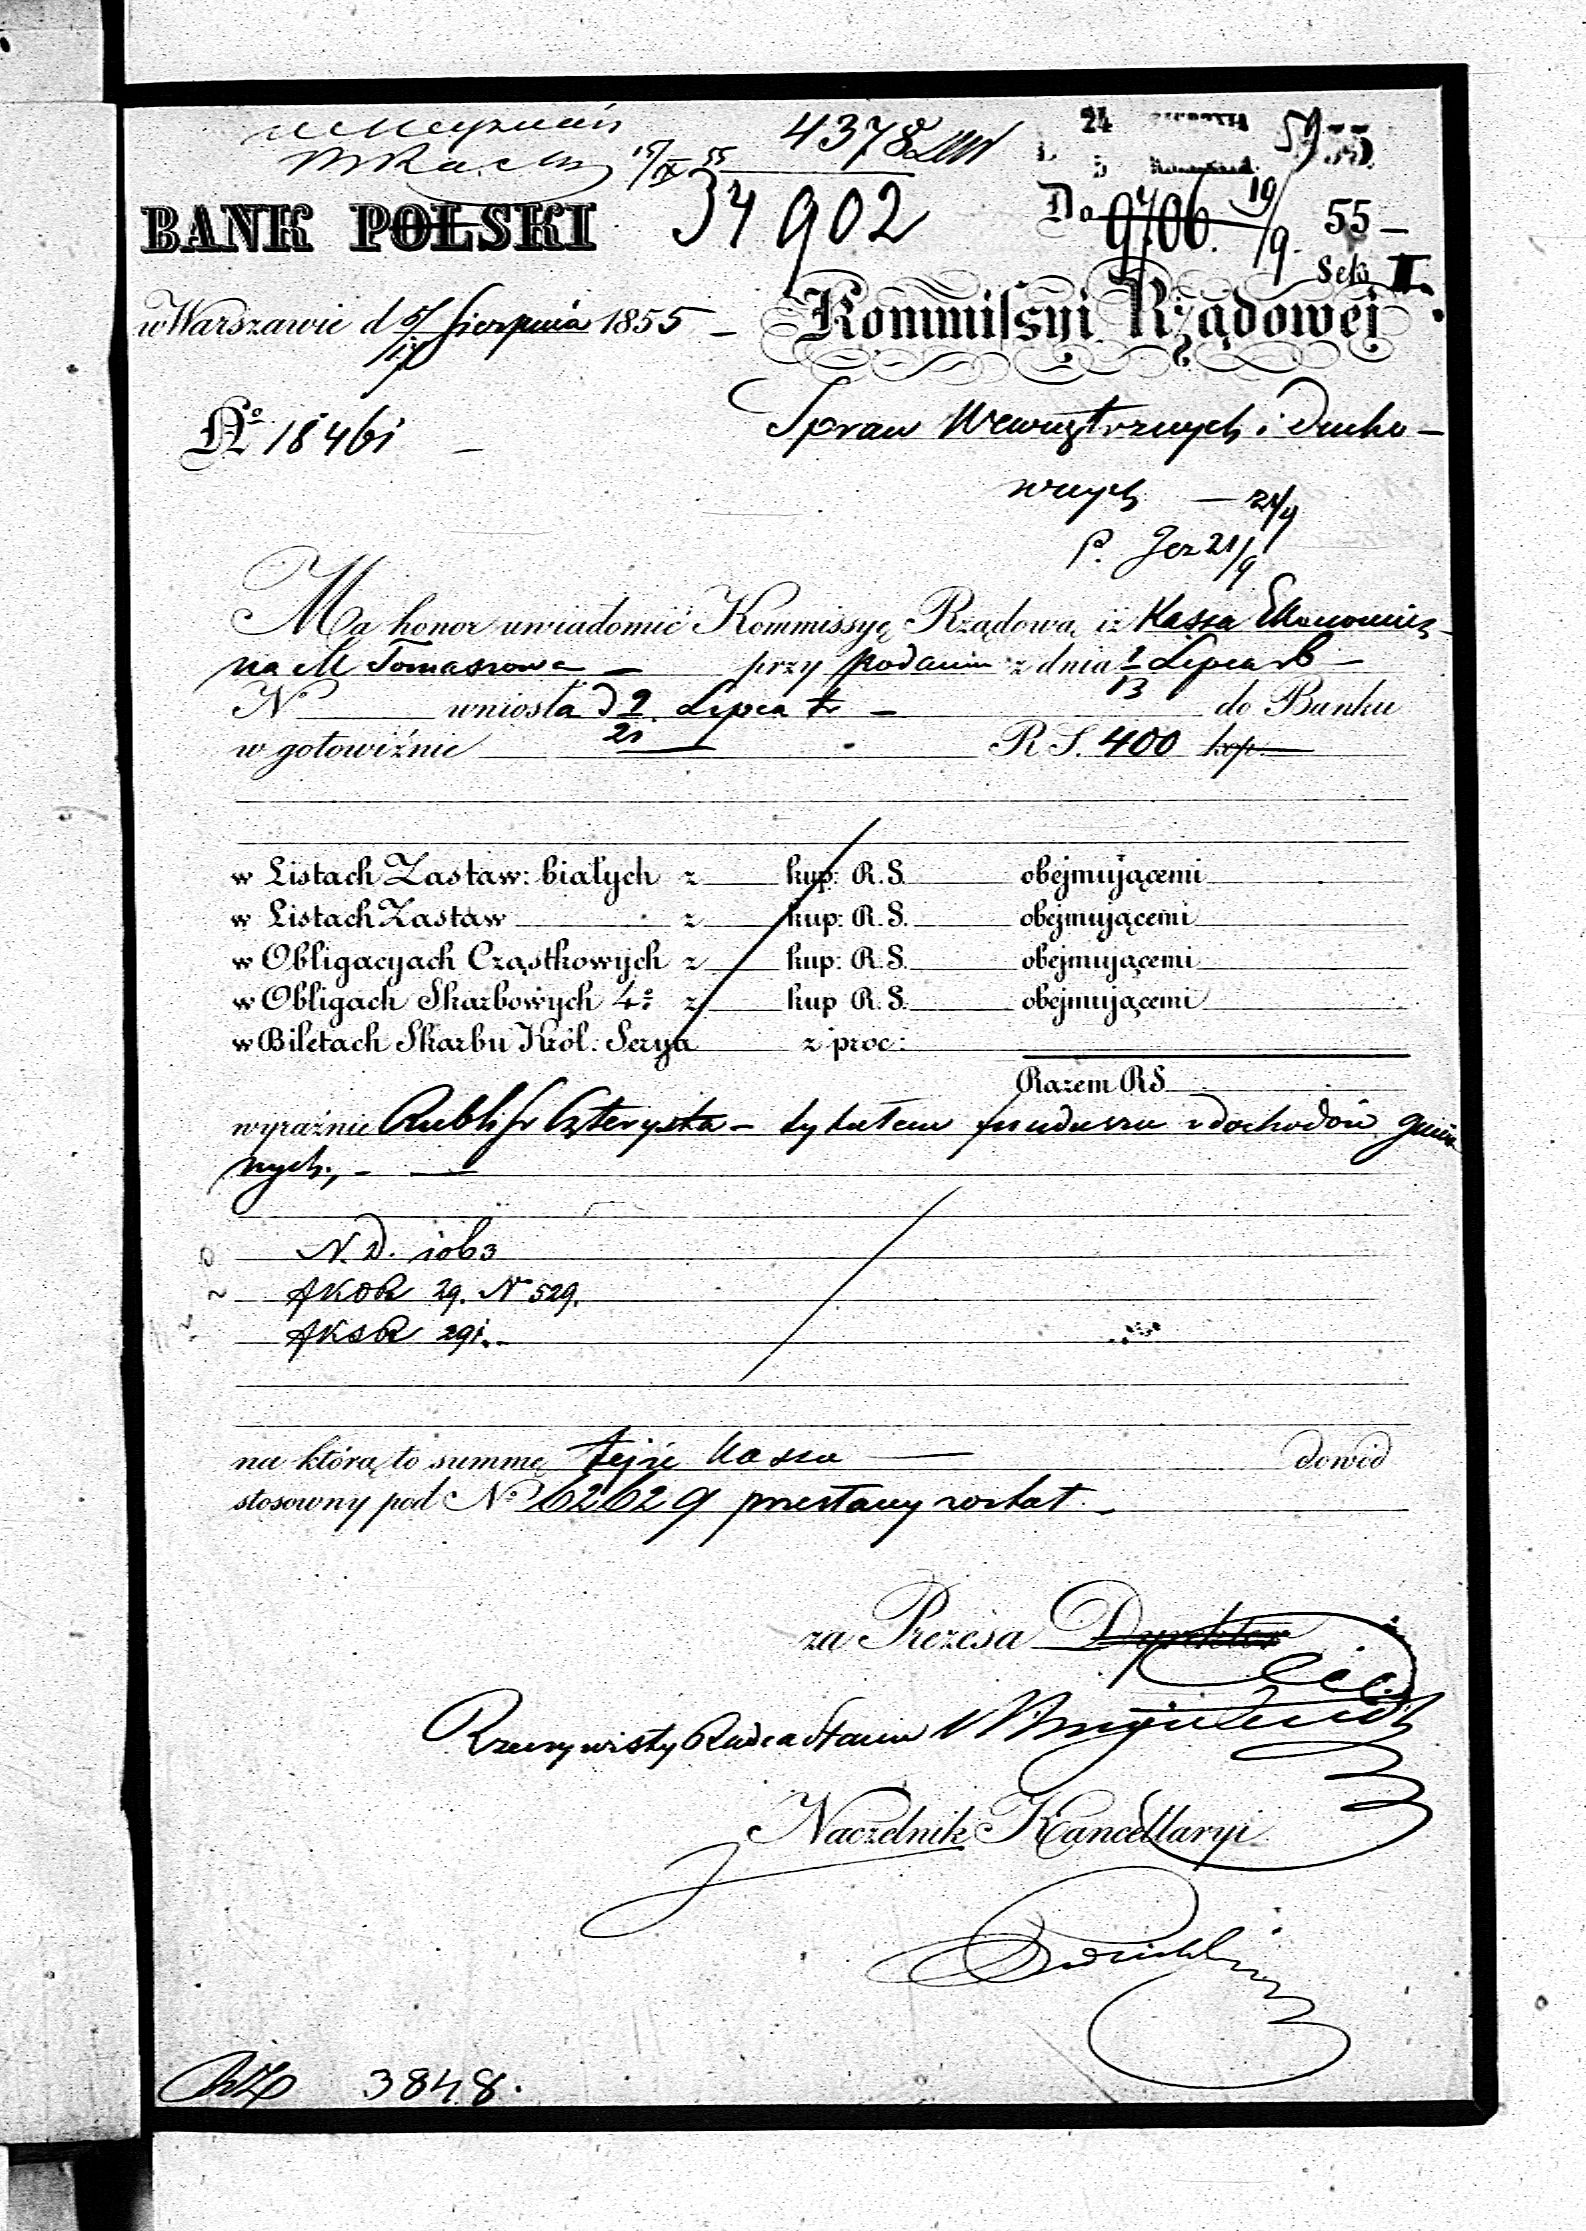 4378
24 59 55
5
BANK POLSKI
34902
Do 9706. 19/9. 55 –
Sek I.
w Warszawie d 5/17 Sierpnia 1855 –
Kommissyi Rządowej
No 18461 –
Spraw Wewnętrznych i Ducho-
wnych – 21/9
P. Jez 21/9
Ma honor uwiadomić Kommissyę Rządową iż Kassa Ekonomicz-
na M Tomaszowa – przy podaniu z dnia 1/13 Lipca rb –
No wniosła d 9/21 Lipca tr – do Banku
w gotowiźnie RS. 400 kop.
w Listach Zastaw: białych z kup: R.S. obejmującemi
w Listach Zastaw z kup: R.S. obejmującemi
w Obligacyach Cząstkowych z kup: R.S. obejmującemi
w Obligach Skarbowych 4% z kup R.S. obejmującemi
w Biletach Skarbu Król. Serya z proc:
Razem RS
wyraźnie Rubli sr Czterysta – tytułem funduszu z dochodów gmin
nych, –
N.D. 1063
AKOR 29. No 529.
AKSR 291. –
na którą to summę tejże kassie dowód
stosowny pod No 62629 przesłany został. –
za Prezesa Dyrektor
Rzeczywisty Radca Stanu
Naczelnik Kancellaryi
3848.